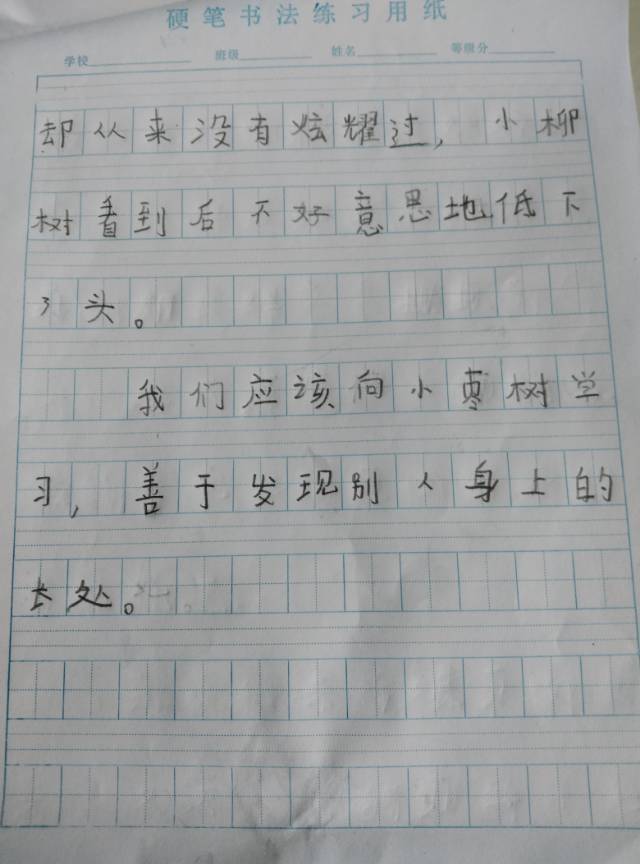 硬笔书法练习用纸
学校 班级 姓名 等级分
却从来没有炫耀过，小柳
树看到后不好意思地低下
了头。
我们应该向小枣树学
习，善于发现别人身上的
长处。